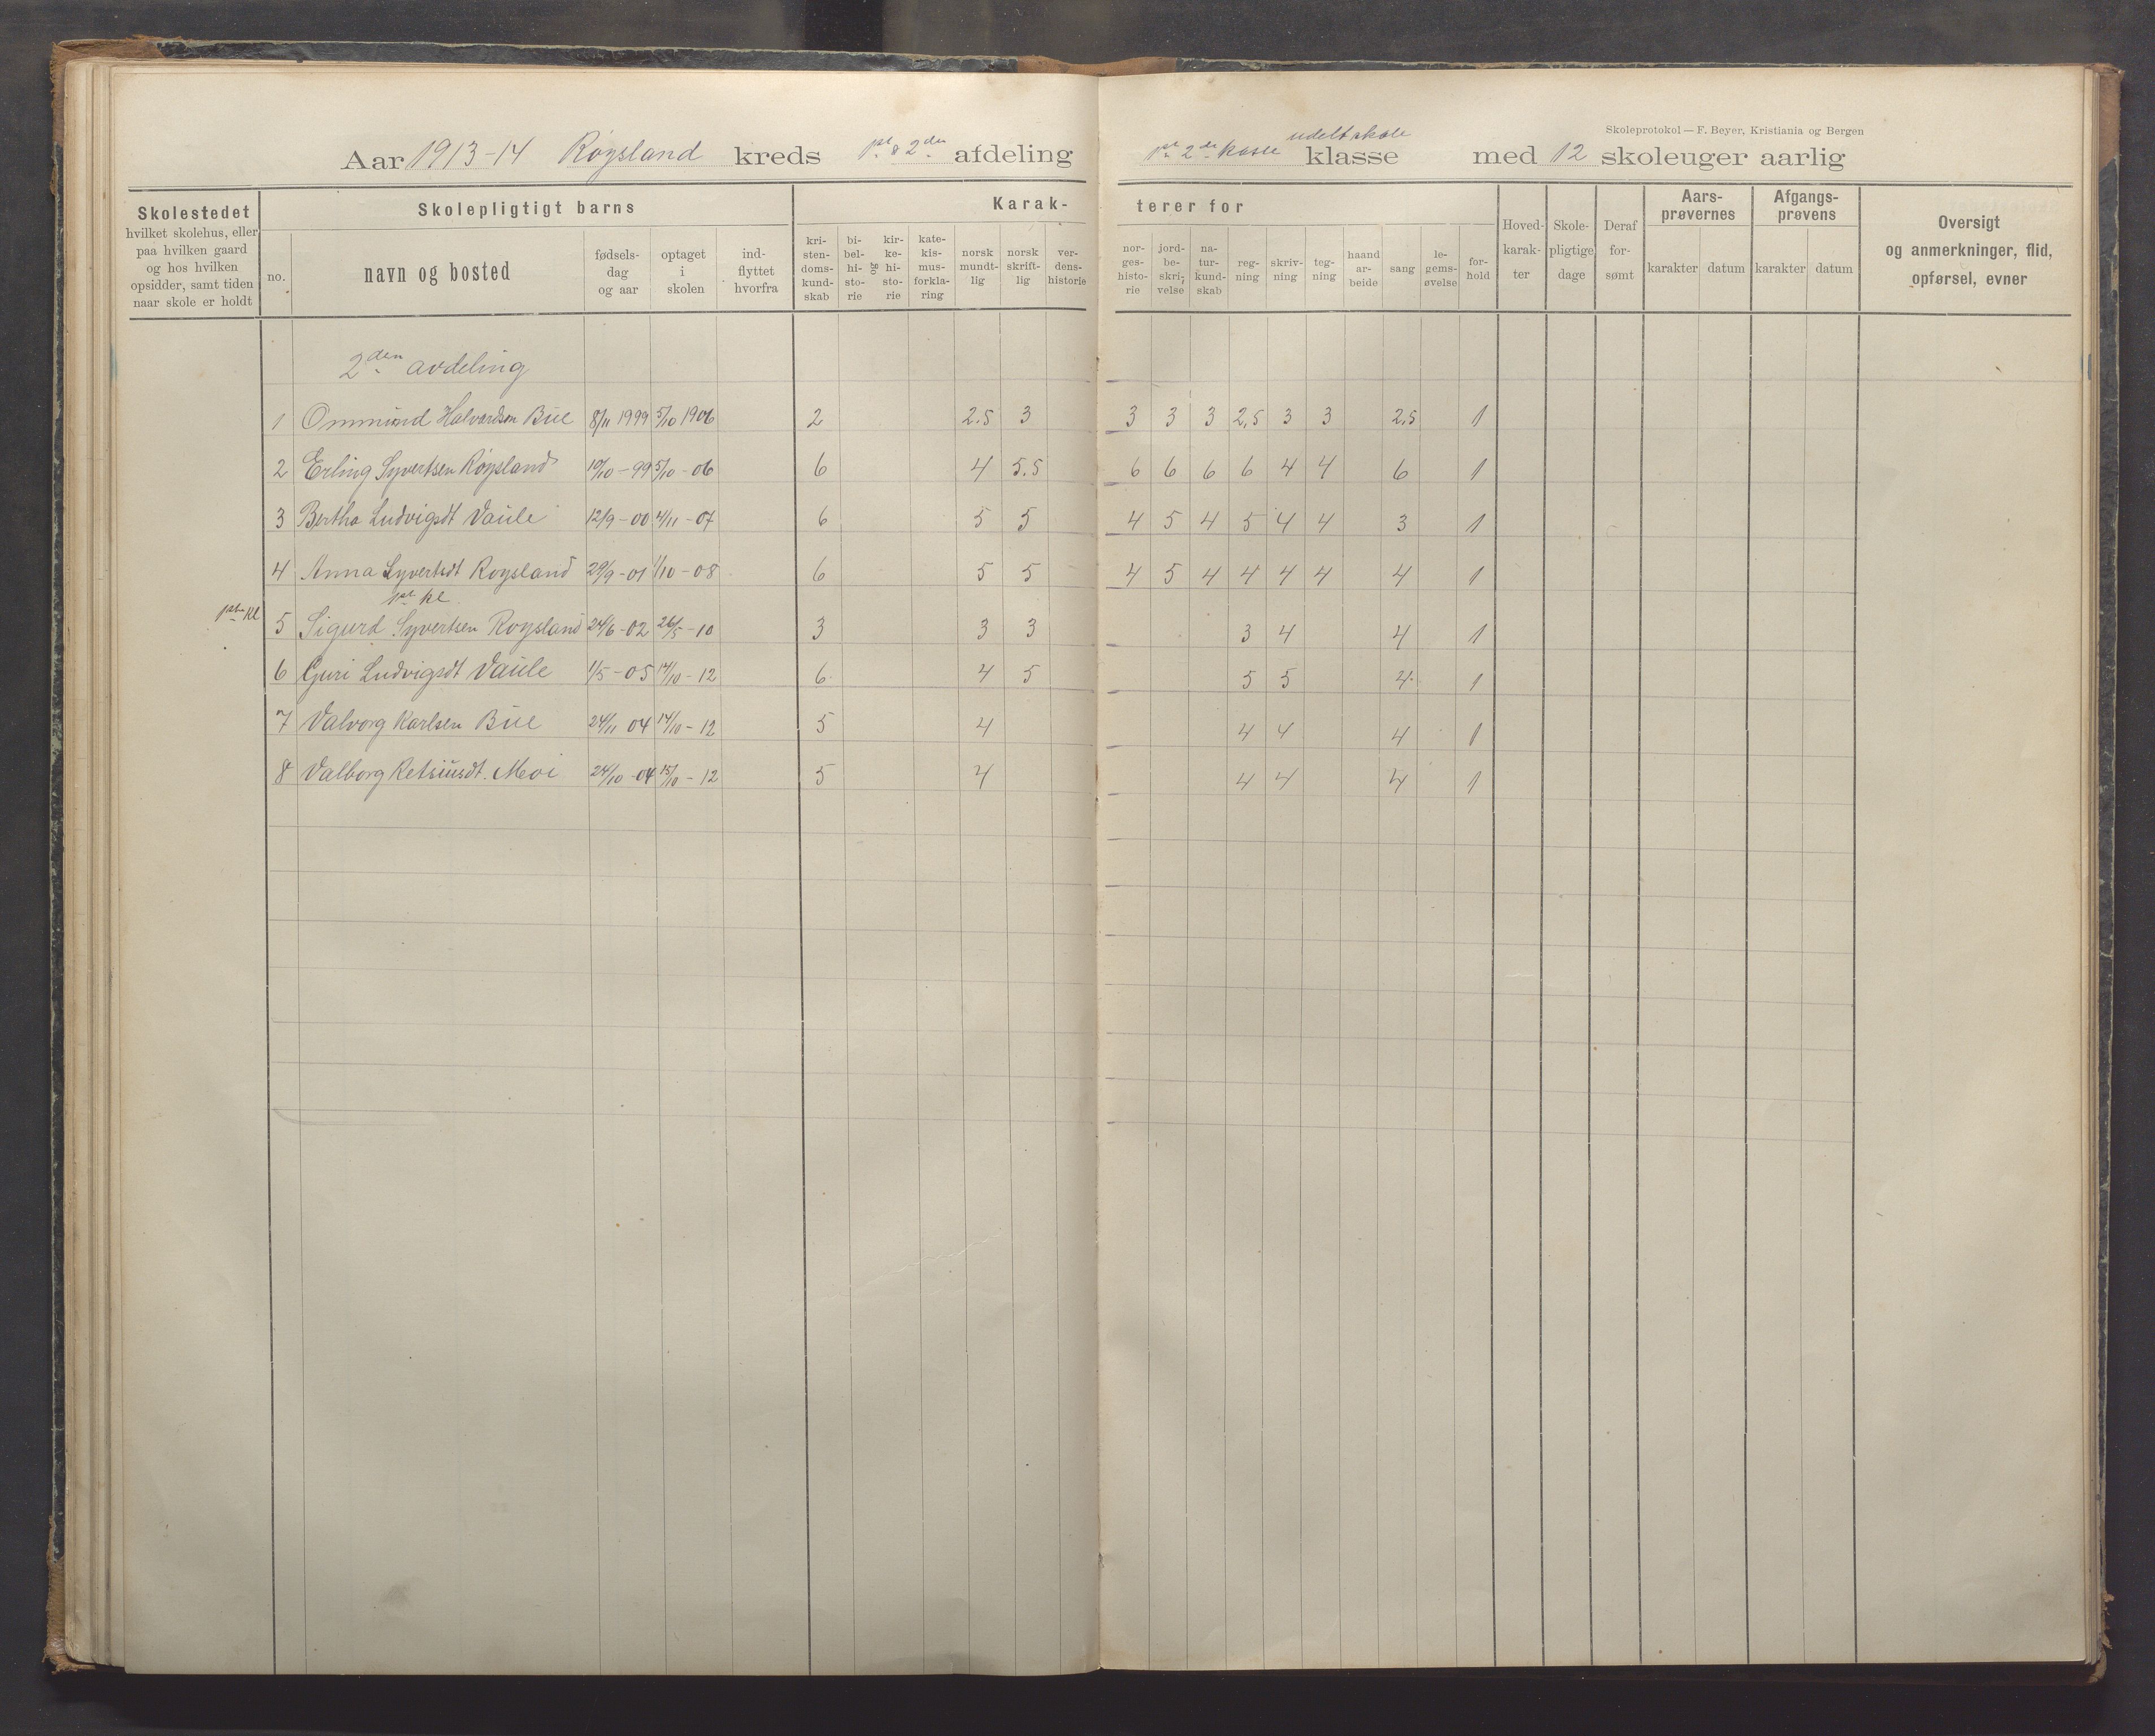 Skoleprotokol — F. Beyer, Kristiania og Bergen
Aar 1913-14 Røysland kreds 1ste & 2den afdeling
udelt skole
1ste 2den klasse klasse med 12 skoleuger aarlig
Skolestedet
hvilket skolehus, eller
paa hvilken gaard
og hos hvilken
opsidder, samt tiden
naar skole er holdt
Skolepligtigt barns
no.
navn og bosted
fødsels-
dag
og aar
optaget
i
skolen
ind-
flyttet
hvorfra
Karak-
terer for
kri-
sten-
doms-
kund-
skab
bi-
bel-
hi-
sto-
rie
og
kir-
ke-
hi-
sto-
rie
kate-
kis-
mus-
forkla-
ring
norsk
mundt-
lig
norsk
skrift-
lig
ver-
dens-
historie
nor-
ges-
histo-
rie
jord-
be-
skri-
velse
na-
tur-
kund-
skab
reg-
ning
skriv-
ning
teg-
ning
haand
ar-
beide
sang
le-
gems-
øvelse
for-
hold
Hoved-
karak-
ter
Skole-
pligtige
dage
Deraf
for-
sømt
Aars-
prøvernes
karakter datum
Afgangs-
prøvens
karakter datum
Oversigt
og anmerkninger, flid,
opførsel, evner
2den avdeling
1 Ommund Halvardsen Bue 8/11 1999 5/10 1906 2 2.5 3 3 3 3 2,5 3 3 2,5 1
2 Erling Syvertsen Røysland 19/10 - 99 5/10 - 06 6 4 5.5 6 6 6 6 4 4 6 1
3 Bertha Ludvigsdt Vaule 12/9 - 00 4/11 - 07 6 5 5 4 5 4 5 4 4 3 1
4 Anna Syvertsdt Roysland 29/9 - 01 1/10 - 08 6 5 5 4 5 4 4 4 4 4 1
1ste kl
1ste Kl 5 Sigurd Syvertsen Roysland 24/6 - 02 26/5 - 10 3 3 3 3 4 4 1
6 Guri Ludvigsdt Vaule 1/5 - 05 14/10 - 12 6 4 5 5 5 4 1
7 Valvorg Karlsen Bue 24/11 04 14/10 - 12 5 4 4 4 4 1
8 Valborg Retsiusdt. Moi 24/10 - 04 15/10 - 12 5 4 4 4 4 1